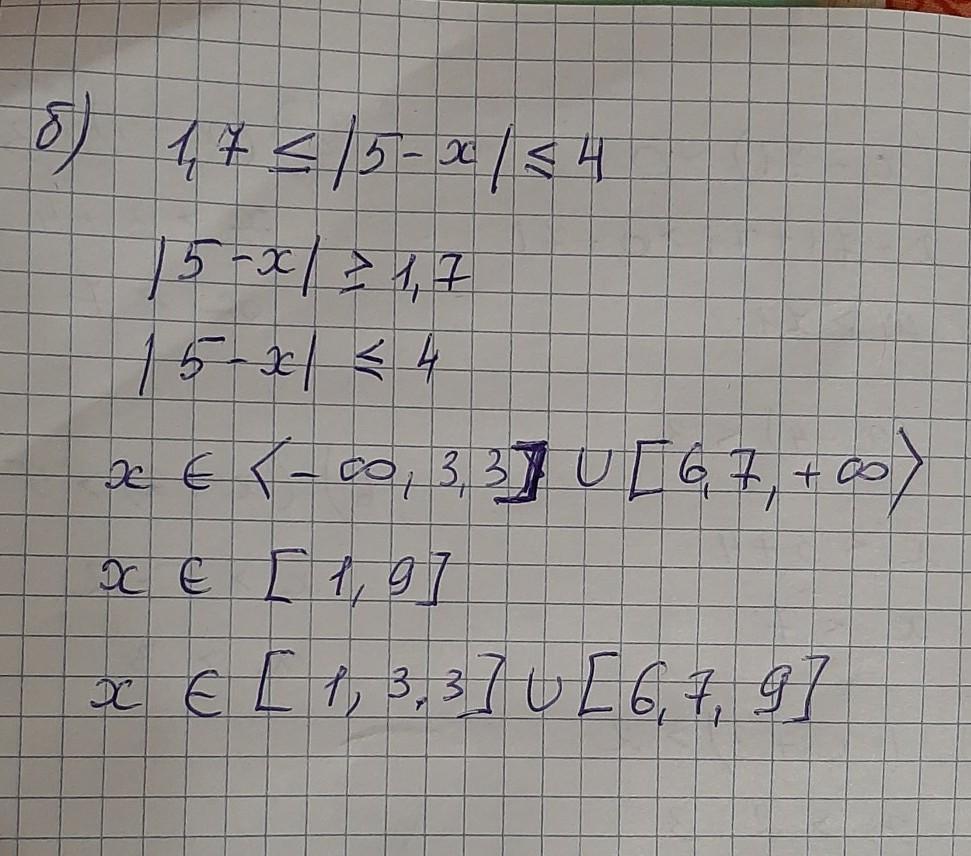 б) 1,7 ≤ |5 - x| ≤ 4
|5 - x| ≥ 1,7
|5 - x| ≤ 4
x ∈ ⟨-∞, 3,3] ∪ [6,7, +∞⟩
x ∈ [1, 9]
x ∈ [1, 3,3] ∪ [6,7, 9]